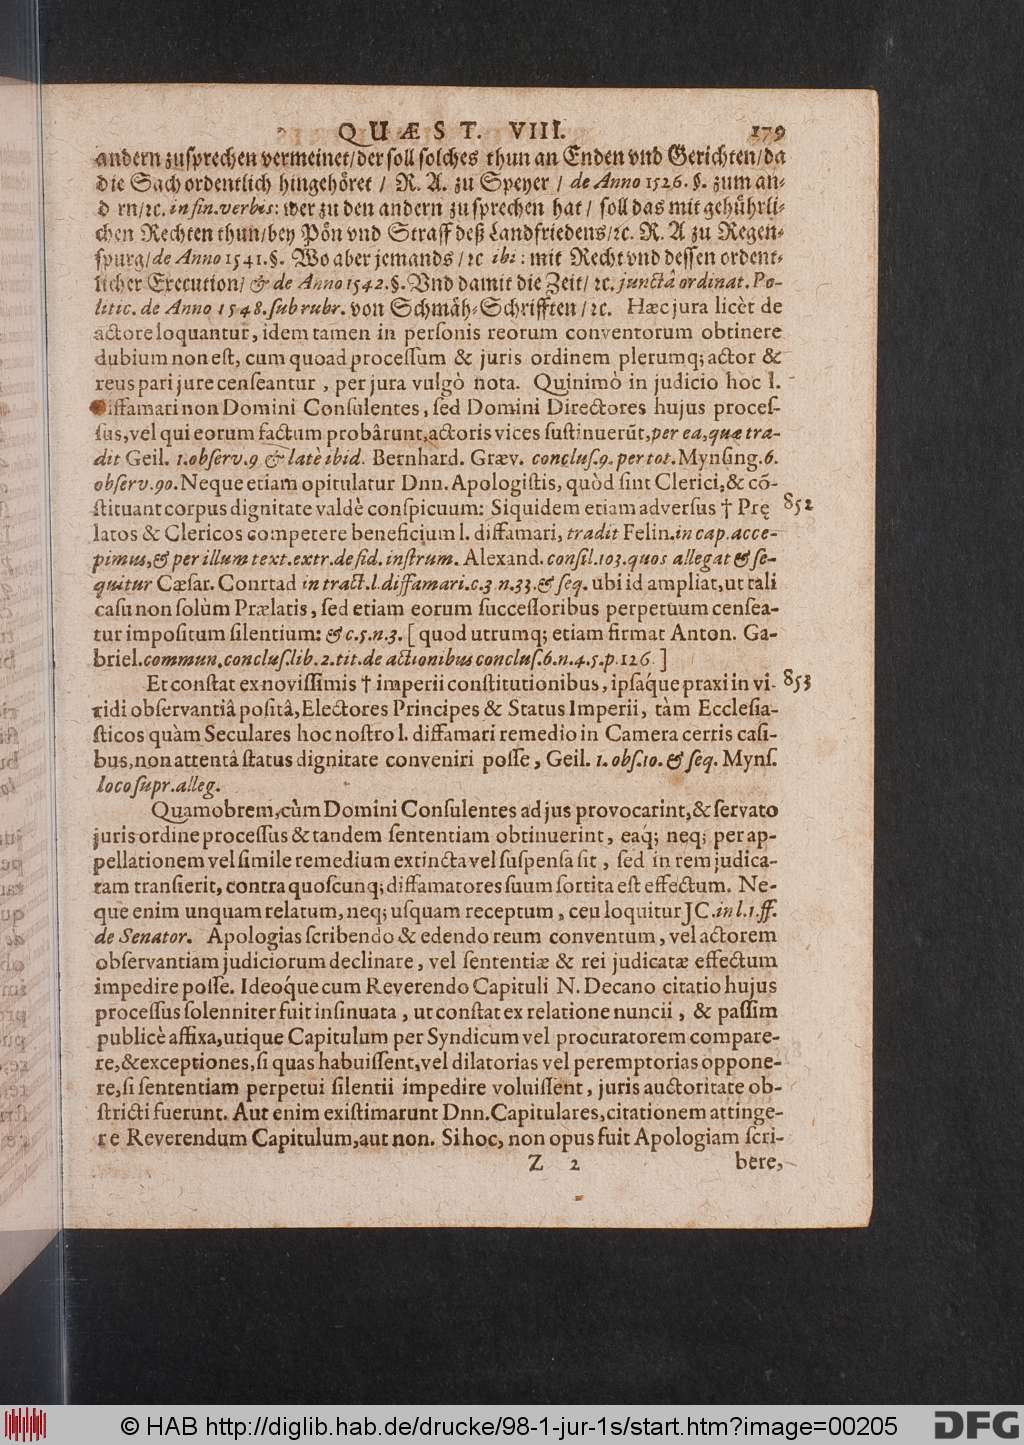 QUÆST. VIII. 179
andern zusprechen vermeinet/der soll solches thun an Enden vnd Gerichten/da
die Sach ordentlich hingehöret / R. A. zu Speyer / de Anno 1526. §. zum an-
d rn/ꝛc. in fin. verbis: wer zu den andern zusprechen hat / soll das mit gebührli-
chen Rechten thun/bey Pön vnd Straff deß Landfriedens/ꝛc. R. A zu Regen-
spurg/de Anno 1541.§. Wo aber jemands /ꝛc ibi: mit Recht vnd dessen ordent-
licher Execution/ & de Anno 1542.§.Vnd damit die Zeit/ ꝛc. junctâ ordinat. Po-
litic. de Anno 1548. sub rubr. von Schmäh-Schrifften /ꝛc. Hæc jura licèt de
actore loquantur, idem tamen in personis reorum conventorum obtinere
dubium non est, cum quoad processum & juris ordinem plerumq; actor &
reus pari jure censeantur, per jura vulgò nota. Quinimò in judicio hoc l.
diffamari non Domini Consulentes, sed Domini Directores hujus proces-
sus, vel qui eorum factum probârunt, actoris vices sustinuerūt, per ea, quæ tra-
dit Geil. 1. observ. 9 & latè ibid. Bernhard. Græv. conclus. 9. per tot. Mynsing. 6.
observ. 90. Neque etiam opitulatur Dnn. Apologistis, quòd sint Clerici, & cō-
stituant corpus dignitate valdè conspicuum: Siquidem etiam adversus † Pręˉ 852
latos & Clericos competere beneficium l. diffamari, tradit Felin. in cap. acce-
pimus, & per illum text. extr. de fid. instrum. Alexand. consil. 103. quos allegat & se-
quitur Cæsar. Conrtad in tract. l. diffamari. c. 3 n. 33. & seq. ubi id ampliat, ut tali
casu non solùm Prælatis, sed etiam eorum successoribus perpetuum censea-
tur impositum silentium: & c. 5. n. 3. [ quod utrumq; etiam firmat Anton. Ga-
briel. commun. conclus. lib. 2. tit. de actionibus conclus. 6. n. 4. 5. p. 126. ]
Et constat ex novissimis † imperii constitutionibus, ipsáque praxi in vi- 853
ridi observantiâ positâ, Electores Principes & Status Imperii, tàm Ecclesia-
sticos quàm Seculares hoc nostro l. diffamari remedio in Camera certis casi-
bus, non attentâ status dignitate conveniri posse, Geil. 1. obs. 10. & seq. Myns.
loco supr. alleg.
Quamobrem, cùm Domini Consulentes ad jus provocarint, & servato
juris ordine processus & tandem sententiam obtinuerint, eaq; neq; per ap-
pellationem vel simile remedium extincta vel suspensa sit, sed in rem judica-
tam transierit, contra quoscunq; diffamatores suum sortita est effectum. Ne-
que enim unquam relatum, neq; usquam receptum, ceu loquitur JC. in l. 1. ff.
de Senator. Apologias scribendo & edendo reum conventum, vel actorem
observantiam judiciorum declinare, vel sententiæ & rei judicatæ effectum
impedire posse. Ideóque cum Reverendo Capituli N. Decano citatio hujus
processus solenniter fuit insinuata, ut constat ex relatione nuncii, & passim
publicè affixa, utique Capitulum per Syndicum vel procuratorem compare-
re, & exceptiones, si quas habuissent, vel dilatorias vel peremptorias oppone-
re, si sententiam perpetui silentii impedire voluissent, juris auctoritate ob-
stricti fuerunt. Aut enim existimarunt Dnn. Capitulares, citationem attinge-
re Reverendum Capitulum, aut non. Si hoc, non opus fuit Apologiam scri-
Z 2 bere,
© HAB http://diglib.hab.de/drucke/98-1-jur-1s/start.htm?image=00205 DFG